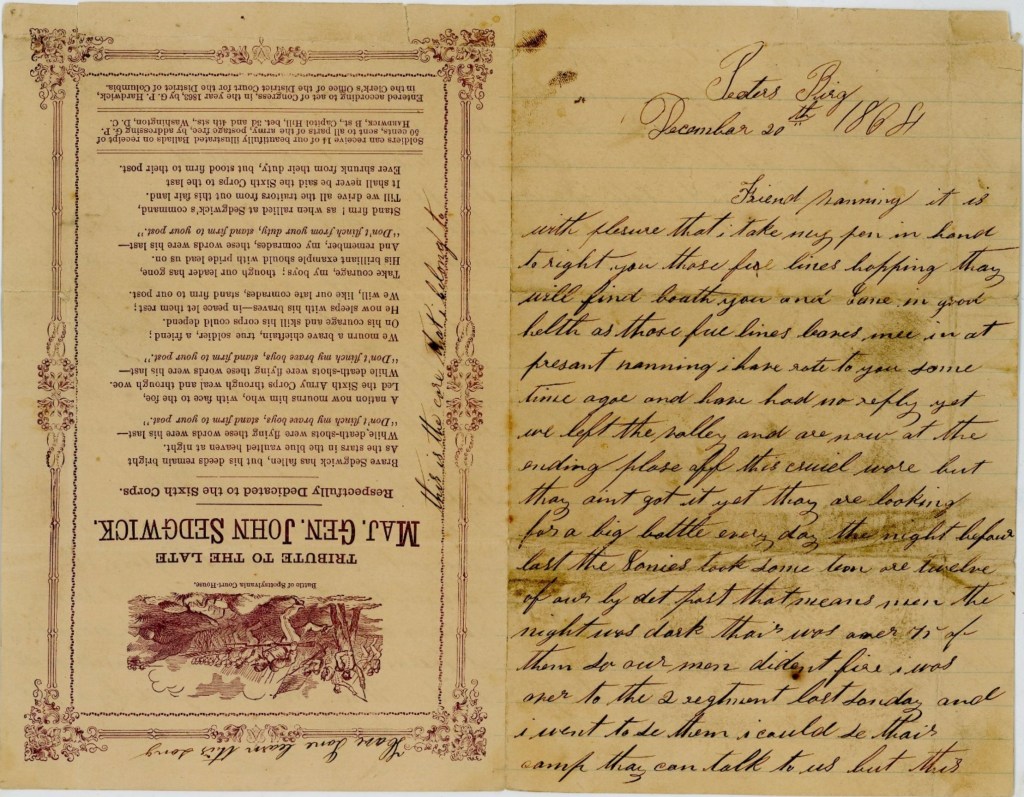 Have Jane learn this song
Battle of Spottsylvania Court-House.
TRIBUTE TO THE LATE
MAJ. GEN. JOHN SEDGWICK.
Respectfully Dedicated to the Sixth Corps.
Brave Sedgwick has fallen, but his deeds remain bright
As the stars in the blue vaulted heaven at night.
While death-shots were flying these words were his last—
"Don't flinch my brave boys, stand firm to your post".
A nation now mourns him who, with face to the foe,
Led the Sixth Army Corps through weal and through woe.
While death-shots were flying these words were his last—
"Don't flinch my brave boys, stand firm to your post".
We mourn a brave chieftain, true soldier, a friend;
On his courage and skill his corps could depend.
He now sleeps with his braves—in peace let them rest;
We will, like our late comrades, stand firm to our post.
Take courage, my boys; though our leader has gone,
His brilliant example should with pride lead us on.
And remember, my comrades, these words were his last—
"Don't flinch from your duty, stand firm to your post".
Stand firm! as when rallied at Sedgwick's command,
Till we drive all the traitors from out this fair land.
It shall never be said the Sixth Corps to the last
Ever shrunk from their duty, but stood firm to their post.
Soldiers can receive 14 of our beautifully illustrated Ballads on receipt of
50 cents, sent to all parts of the army, postage free, by addressing G. P.
HARDWICK, B st., Capitol Hill, bet. 3d and 4th sts., Washington, D. C.
Entered according to act of Congress, in the year 1863, by G. P. Hardwick,
in the Clerk's Office of the District Court for the District of Columbia.
this is the core that i belong to
Peters Birg
December 20th 1864
Friend nanning it is
with plesure that i take my pen in hand
to right you those fue lines hopping thay
will find boath you and Jane in good
helth as those fue lines leaves mee in at
presant nanning i have rote to you some
time agoe and have had no reply yet
we left the valley and are now at the
ending plase off this cruiel wore but
thay aint got it yet thay are looking
for a big battle every day the night befour
last the Jonies took some ten are twelve
of our by det post that means men the
night was dark thair was over 75 of
them so our men dident fire i was
over to the 2 regtment last sonday and
i went to se them i could se thair
camp thay can talk to us but this